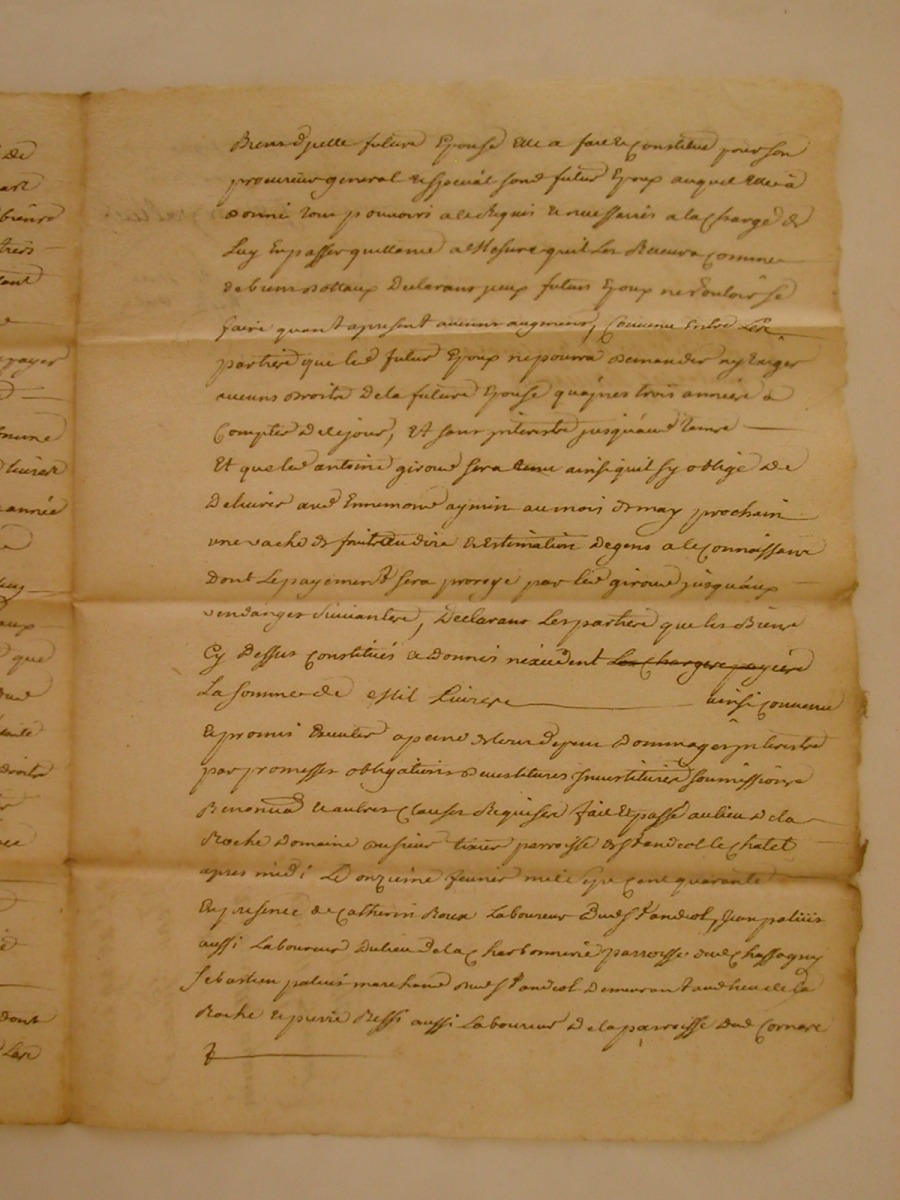 de
art
biens
tiers
tant
e
payer
mune
livres
année
e
aux
que
droits
dont
Biens d'jcelle future Epouse Elle a fait & constitué pour son
procureur general & special sond futur Epoux auquel Elle a
donné tous pouvoirs a ce Requis & necessaires a la charge de
Luy En passer quittance a Mesure quil Les Recevra comme
de biens dottaux Declarans jceux futurs Epoux ne vouloir se
faire quant apresent aucuns augments, Convenu Entre Les
parties que led futur Epoux ne pourra demander ny Exiger
aucuns droits de la future Epouse qu'apres trois années a
Compter de ce jour, Et sans jnterests jusqu'aud terme
Et que led antoine giroud sera tenu ainsi quil sy oblige De
Delivrer aud Ennemond aymin au mois de may prochain
une vache de fruit au dire & Estimation de gens a ce Connaissans
dont Le payement sera prorogé par led giroud jusqu'aux
vendanges suivantes, Declarans Les parties que les Biens
Cy Dessus constitués & Donnés n'excedent Les Charges payées
La somme de Mil Livres ainsi convenu
& promis Executer a peine de tous depens Dommages jnterests
par promesses obligations devestitures jnvestitures soumissions
Renonciaõ & autres Clauses Requises fait & passé au lieu de la
Roche Domaine du sieur tixier parroisse de St andeol le chatel
apres midi Le onzieme fevrier mil sept cent quarante
En presence de Catherin Roux Laboureur Dud St andeol, Jean palluis
aussi Laboureur Du lieu de la Charbonniere parroisse dud Chassagny
Sebastien palluis marchand Dud St andeol Demeurant aud lieu de la
Roche & pierre Ressi aussi Laboureur De la parroisse dud Cornas
&